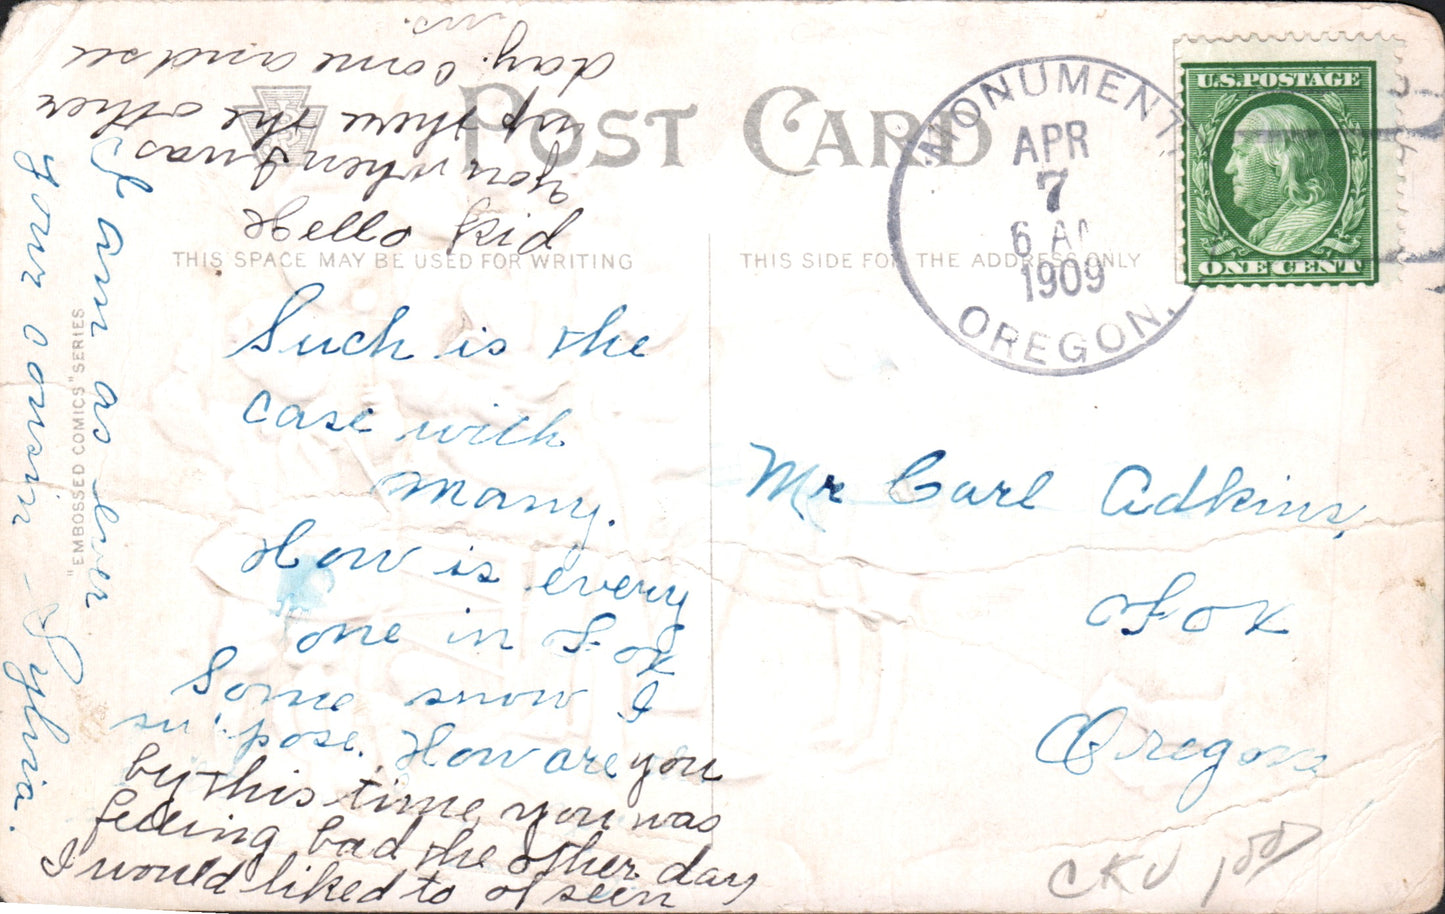 POST CARD
THIS SPACE MAY BE USED FOR WRITING
THIS SIDE FOR THE ADDRESS ONLY
"EMBOSSED COMICS" SERIES
MONUMENT
APR
7
6 A
1909
OREGON.
U.S. POSTAGE
ONE CENT
Hello Kid
Such is the
case with
many.
How is every
one in Fox
Some snow I
su'pose. How are you
by this time, you was
feeling bad the other day
I would liked to of seen
you when I was
up there the other
day. Come and see
us.
I am as ever
your cousin - Sylvia.
Mr Carl Adkins,
Fox
Oregon
CKV 100